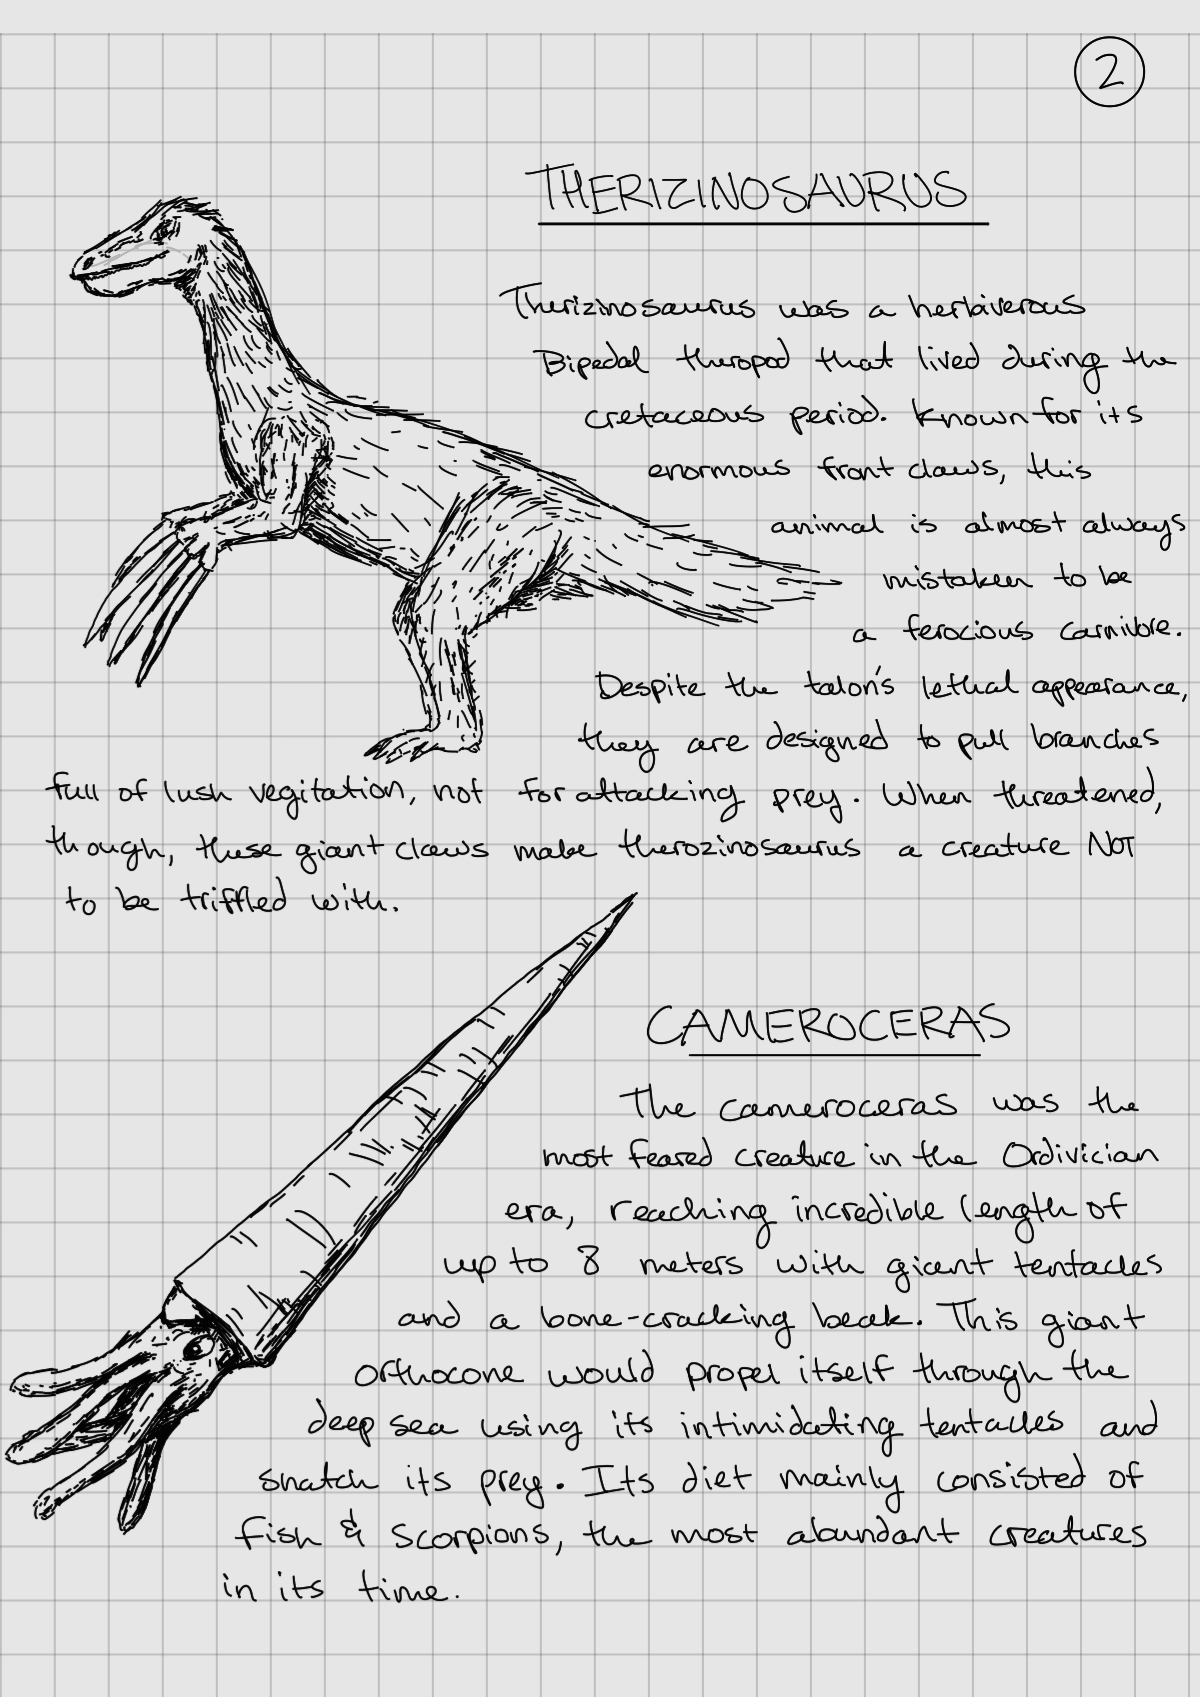 2
THERIZINOSAURUS
Therizinosaurus was a herbiverous
Bipedal theropod that lived during the
cretaceous period. Known for its
enormous front claws, this
animal is almost always
mistaken to be
a ferocious carnivore.
Despite the talon's lethal appearance,
they are designed to pull branches
full of lush vegitation, not for attacking prey. When threatened,
though, these giant claws make therozinosaurus a creature NOT
to be triffled with.
CAMEROCERAS
The cameroceras was the
most feared creature in the Ordivician
era, reaching incredible length of
up to 8 meters with giant tentacles
and a bone-cracking beak. This giant
orthocone would propel itself through the
deep sea using its intimidating tentacles and
snatch its prey. Its diet mainly consisted of
fish & scorpions, the most abundant creatures
in its time.